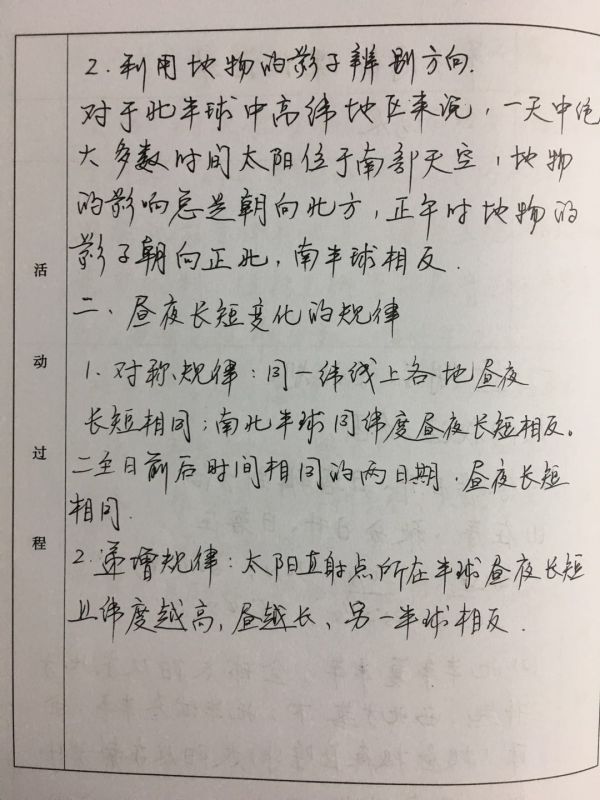 2. 利用地物的影子辨别方向.
对于北半球中高纬地区来说，一天中绝
大多数时间太阳位于南部天空，地物
的影响总是朝向北方，正午时地物的
影子朝向正北，南半球相反.
二、昼夜长短变化的规律
1、对称规律：同一纬线上各地昼夜
长短相同；南北半球同纬度昼夜长短相反。
二至日前后时间相同的两日期，昼夜长短
相同.
2. 递增规律：太阳直射点所在半球昼夜长短
且纬度越高，昼越长、另一半球相反.
活
动
过
程